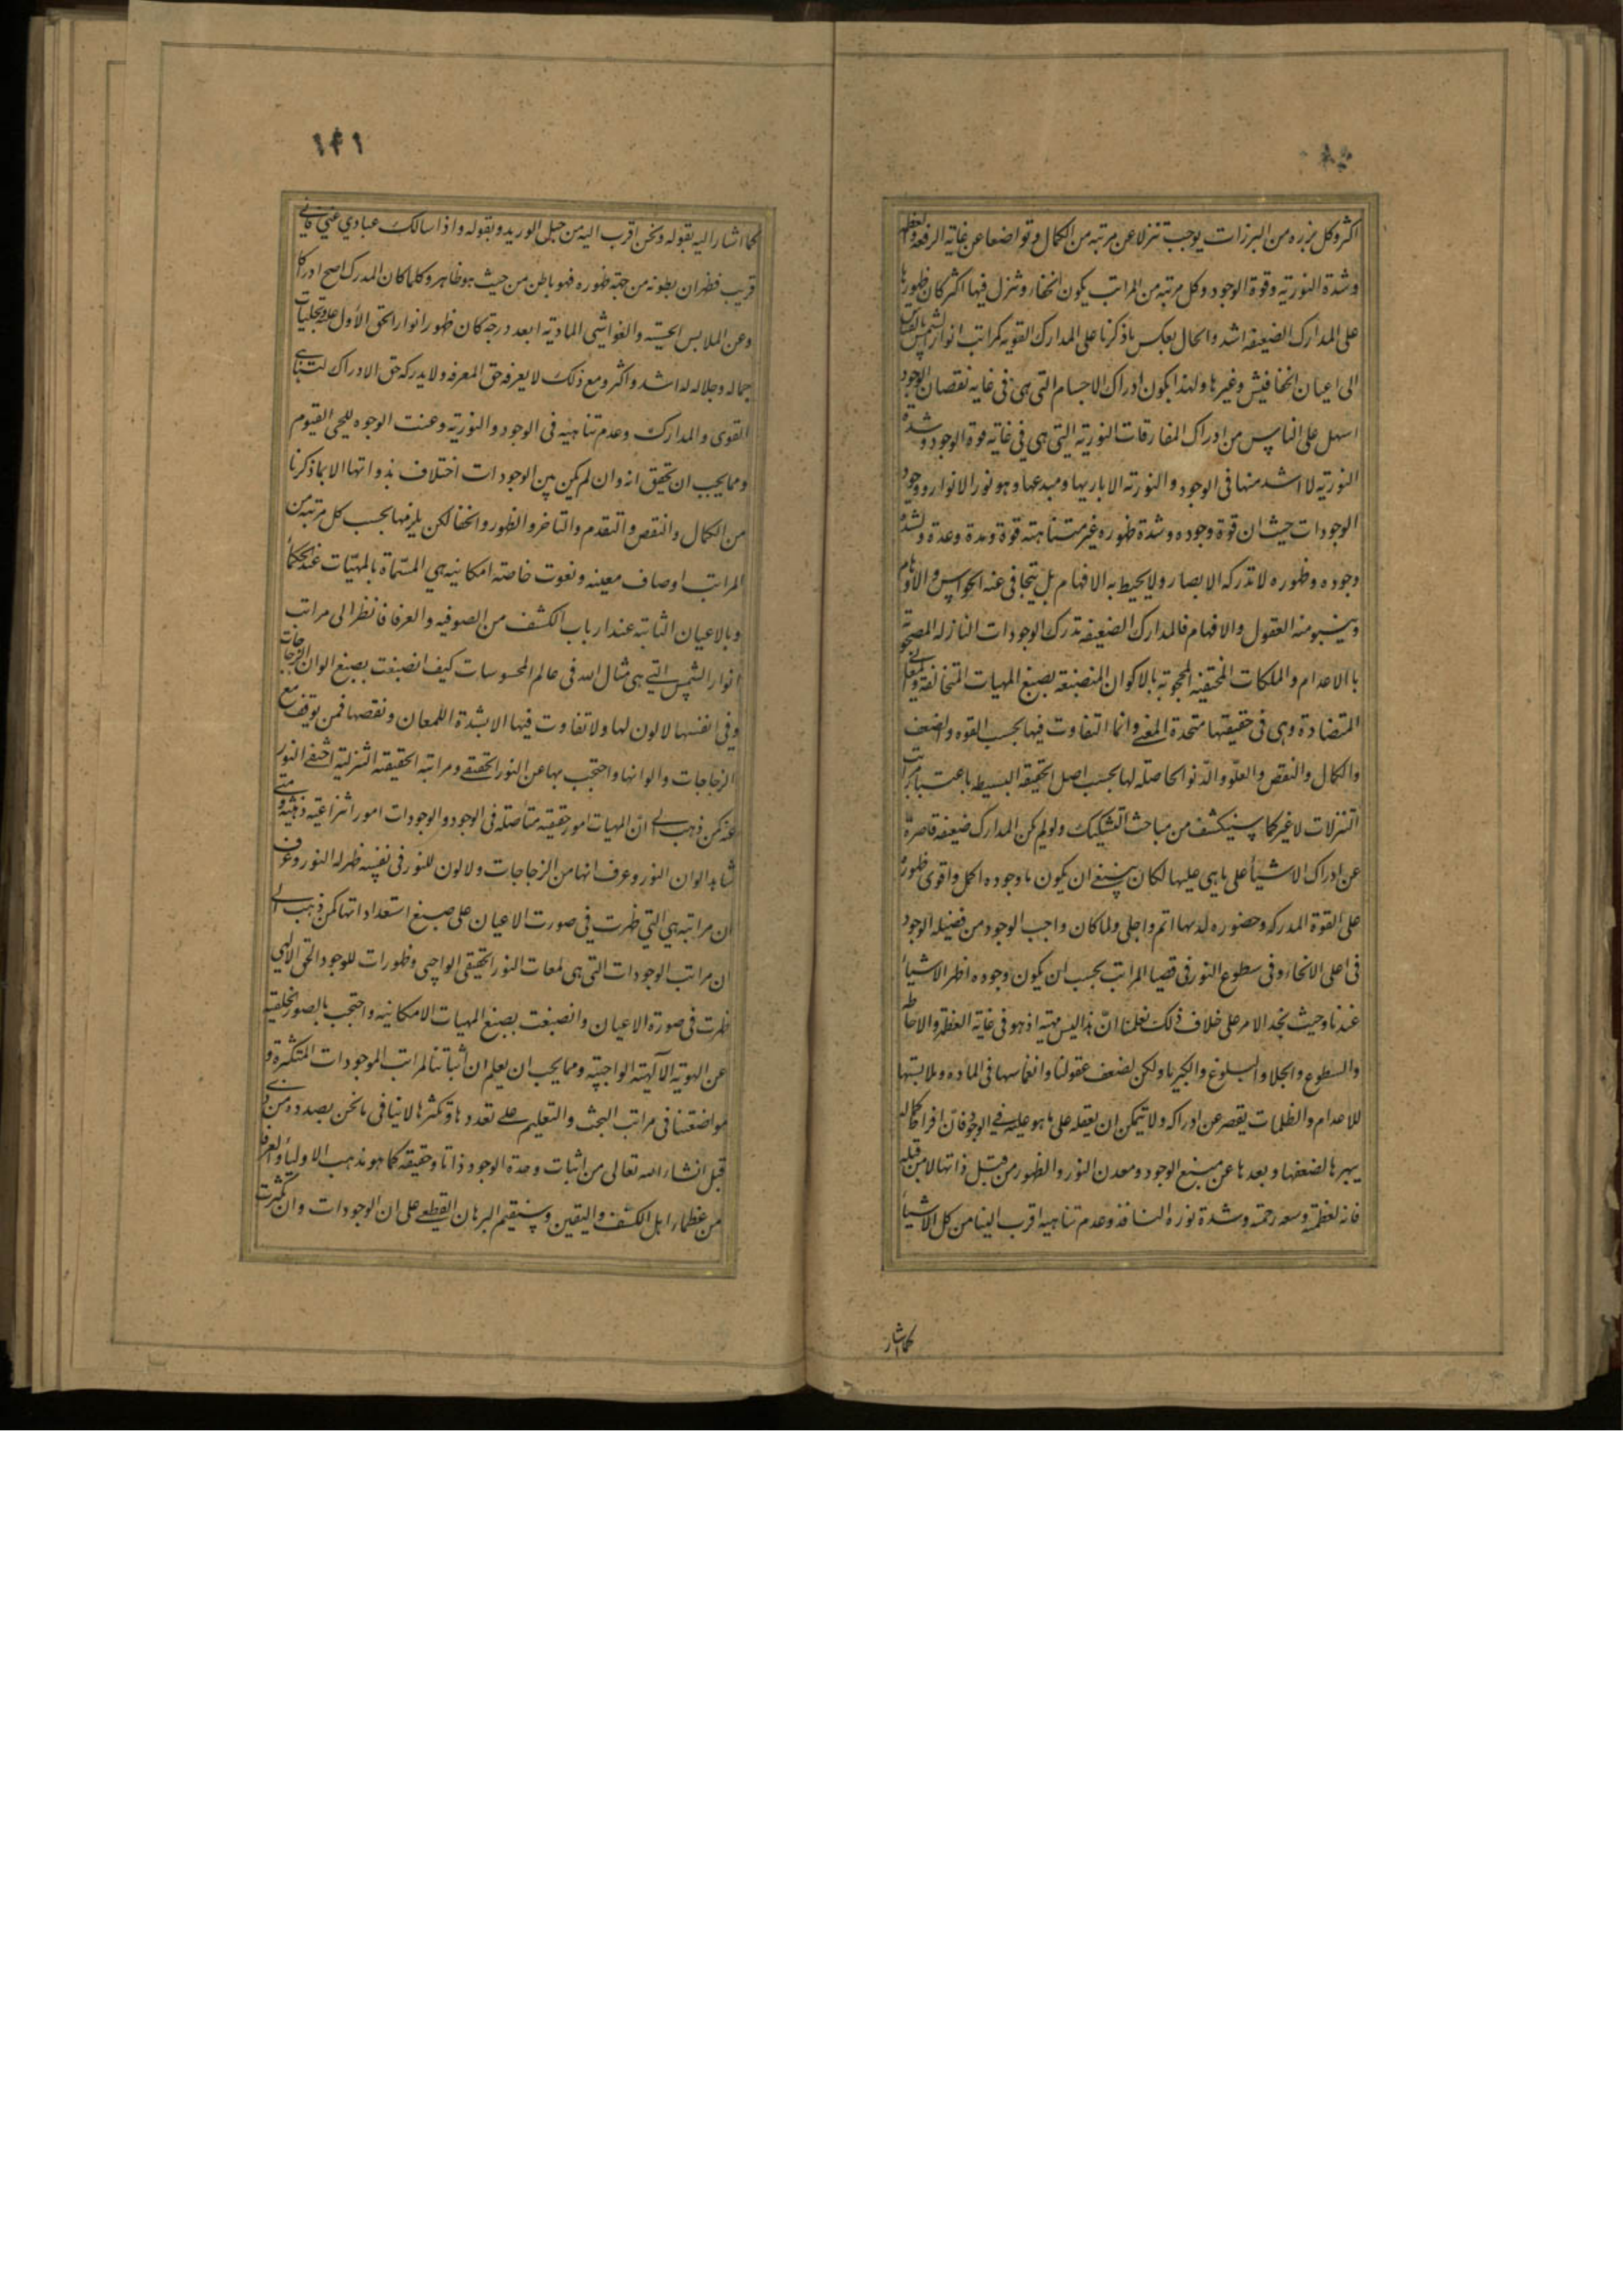 اكثر وكل برزه من البرزات يوجب تنزلا عن مرتبه من الكمال و تواضعا عن غاية الرفعة والعظمه
وشدة النورية وقوة الوجود وكل مرتبه من المراتب يكون الخفاء وتنزل فيها اكثر كان ظهورها
على المدارك الضعيفه اشد والحال بعكس ماذكرنا على المدارك القويه كمراتب انوار الشمس بالقياس
الى اعيان الخفافيش وغيرها ولهذا يكون ادراك الاجسام التى هى فى غايه نقصان الوجود
اسهل على الناس من ادراك المفارقات النورية التى هى فى غاية قوة الوجود وشدة
النورية لا اشد منها فى الوجود والنورية الا باريها ومبدعها وهو نور الانوار ووجود
الوجودات حيث ان قوة وجوده وشدة ظهوره غير متناهية قوة ومدة وعدة ولشدة
وجوده وظهوره لا تدركه الابصار ولا يحيط به الافهام بل يتجافى عنه الحواس والاوهام
وينبو منه العقول والافهام فالمدارك الضعيفه تدرك الوجودات النازله المصحوبة
بالاعدام والملكات المختفيه المحجوبة بالاكوان المنصبغة بصبغ المهيات المتخالفة والمعانى
المتضادة وهى فى حقيقتها متحدة المعنى وانما التفاوت فيها بحسب القوه والضعف
والكمال والنقص والعلو والدنو الحاصله لها بحسب اصل الحقيقه البسيطه باعتبار مراتب
التنزلات لا غير كما سينكشف من مباحث التشكيك ولو لم يكن المدارك ضعيفه قاصرة
عن ادراك الاشياء على ما هى عليها لكان ينبغى ان يكون ما وجوده اكمل واقوى ظهوره
على القوة المدركه وحضوره لديها اتم واجلى ولما كان واجب الوجود من فضيله الوجود
فى اعلى الانحاء وفى سطوع النور فى قصيا المراتب يجب ان يكون وجوده اظهر الاشياء
عندنا وحيث نجد الامر على خلاف ذلك علمنا ان هذا ليس من جهته اذ هو فى غاية العظمه والاحاطه
والسطوع والجلا والبلوغ والكبرياء ولكن لضعف عقولنا وانغماسها فى الماده وملابستها
للاعدام والظلمات يقصر عن ادراكه ولا يتمكن ان يعقله على ما هو عليه فى الوجود فان افراط كماله
يبهرها لضعفها وبعدها عن منبع الوجود ومعدن النور والظهور من قبل ذاتها لا من قبله
فانه لعظمته وسعه رحمته وشدة نوره النافذ وعدم تناهيه اقرب الينا من كل الاشياء
كما اشار
۱۴۱
كما اشار اليه بقوله ونحن اقرب اليه من حبل الوريد وبقوله واذا سالك عبادي عني فانى
قريب فظهر ان بطونه من جهة ظهوره فهو باطن من حيث هو ظاهر وكلما كان المدرك اصح ادراكا
وعن الملابس الحسيه والغواشى المادية ابعد درجة كان ظهور انوار الحق الأول عليه وتجليات
جماله وجلاله له اشد واكثر ومع ذلك لا يعرفه حق المعرفه ولا يدركه حق الادراك لتناهى
القوى والمدارك وعدم تناهيه فى الوجود والنورية وعنت الوجوه للحى القيوم
ومما يجب ان تحقق انه وان لم يكن بين الوجودات اختلاف بذواتها الا بما ذكرنا
من الكمال والنقص والتقدم والتاخر والظهور والخفا لكن يلزمها بحسب كل مرتبه من
المراتب اوصاف معينه ونعوت خاصة امكانيه هي المسماة بالمهيات عند الحكماء
وبالاعيان الثابته عند ارباب الكشف من الصوفيه والعرفا فانظر الى مراتب
انوار الشمس التى هى مثال الله فى عالم المحسوسات كيف انصبغت بصبغ الوان الزجاجات
وفى انفسها لا لون لها ولا تفاوت فيها الا بشدة اللمعان ونقصها فمن توقف مع
الزجاجات والوانها واحتجب بها عن النور الحقيقى ومراتبه الحقيقه التنزلية اختفى النور
عنه كمن ذهب الى ان المهيات امور حقيقيه متأصله فى الوجود والوجودات امور انتزاعيه ذهنية ومتى
شاهد الوان النور وعرف انها من الزجاجات ولا لون للنور فى نفسه ظهر له النور وعرف
ان مراتبه هي التي ظهرت في صورت الاعيان على صبغ استعداداتها كمن ذهب الى
ان مراتب الوجودات التى هى لمعات النور الحقيقى الواجبى وظهورات للوجود الحق الالهى
ظهرت فى صورة الاعيان وانصبغت بصبغ المهيات الامكانيه واحتجب بالصور الخلقيه
عن الهوية الآلهية الواجبية ومما يجب ان يعلم ان اثباتنا لمراتب الموجودات المتكثرة و
مواضعتنا فى مراتب البحث والتعليم على تعددها وتكثرها لا ينافى ما نحن بصدده من ذى
قبل انشاء الله تعالى من اثبات وحدة الوجود ذاتا وحقيقه كما هو مذهب الاولياء والعرفا
من عظماء اهل الكشف واليقين وسنقيم البرهان القطعى على ان الوجودات وان تكثرت